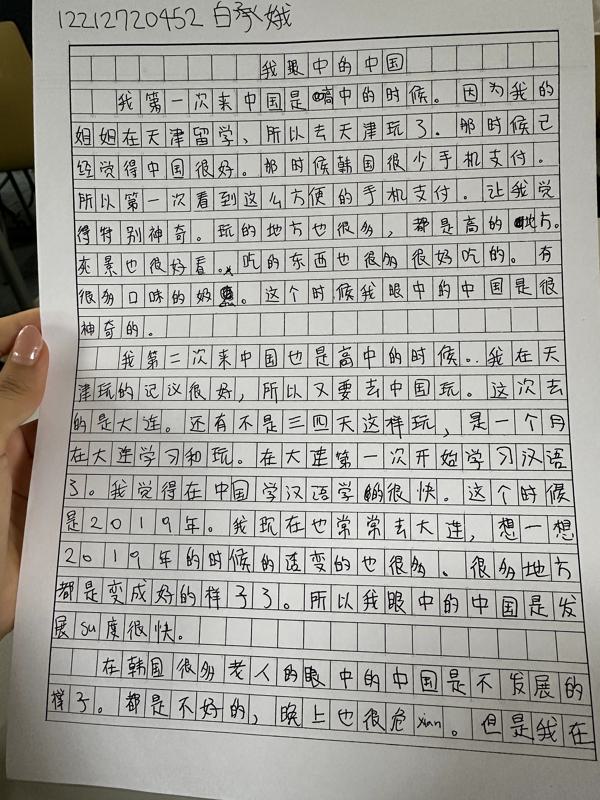 12212720452 白承娥
我眼中的中国
我第一次来中国是高中的时候。因为我的
姐姐在天津留学，所以去天津玩了。那时候已
经觉得中国很好。那时候韩国很少手机支付。
所以第一次看到这么方便的手机支付。让我觉
得特别神奇。玩的地方也很多，都是高的地方。
夜景也很好看。吃的东西也很多很好吃的。有
很多口味的奶。这个时候我眼中的中国是很
神奇的。
我第二次来中国也是高中的时候。我在天
津玩的记议很好，所以又要去中国玩。这次去
的是大连。还有不是三四天这样玩，是一个月
在大连学习和玩。在大连第一次开始学习汉语
了。我觉得在中国学汉语学的很快。这个时候
是2019年。我现在也常常去大连，想一想
2019年的时候的话变的也很多。很多地方
都是变成好的样子了。所以我眼中的中国是发
展su度很快。
在韩国很多老人的眼中的中国是不发展的
样子。都是不好的，晚上也很危xian。但是我在